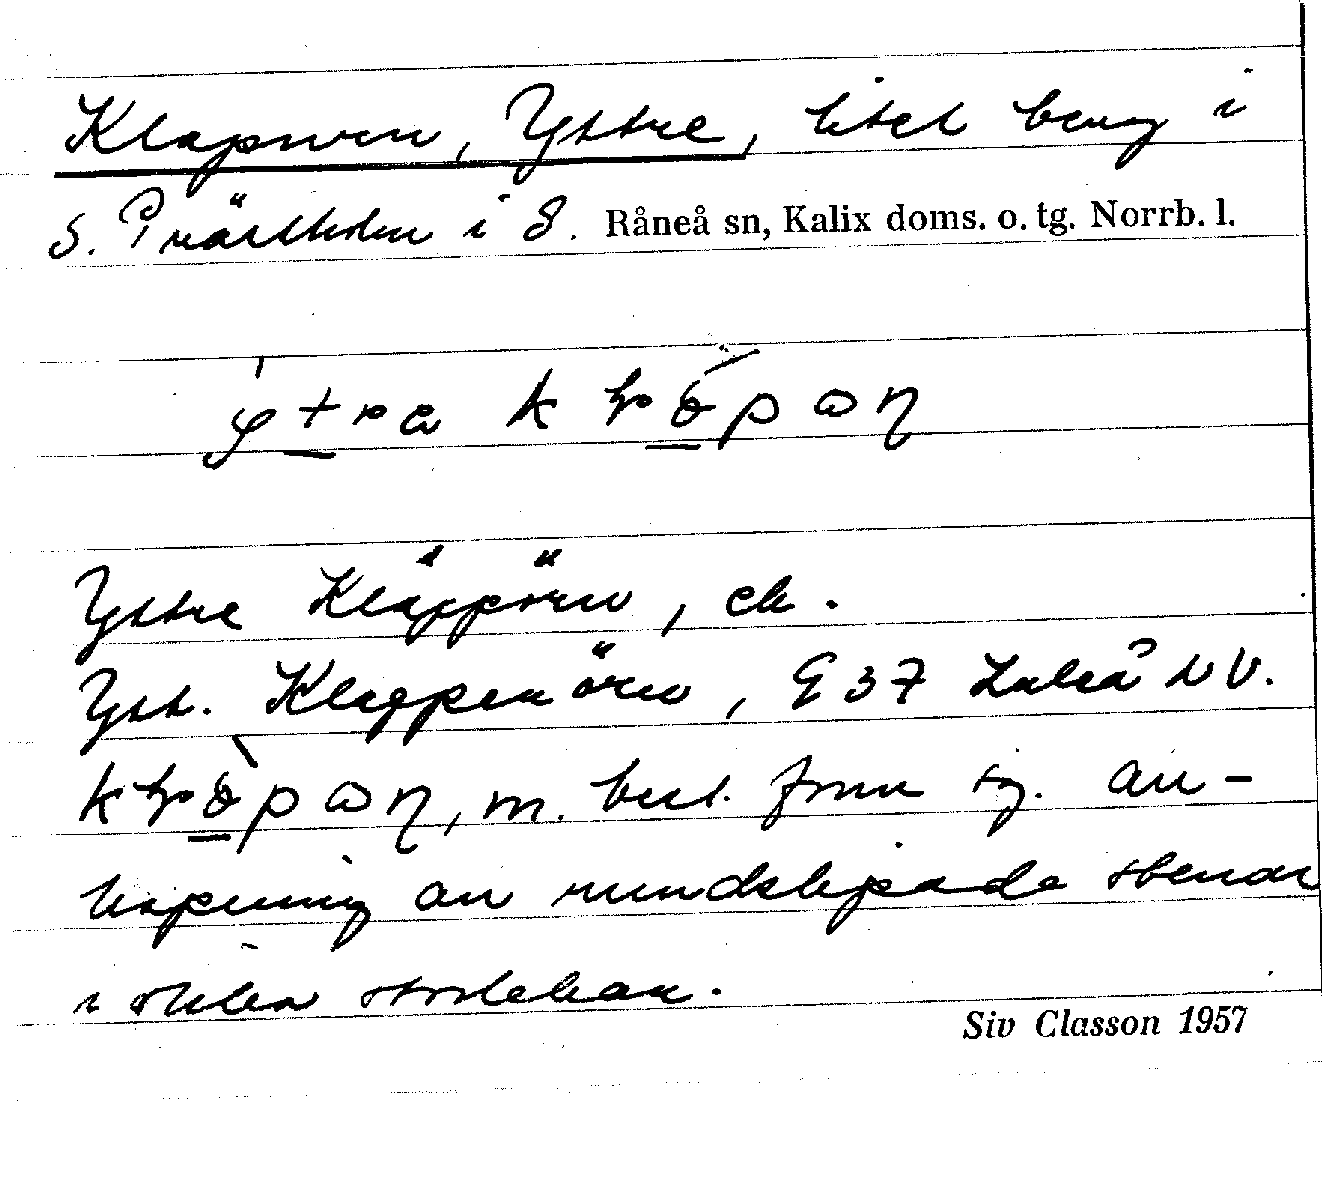 Klapuven, Yttre, litet berg i
S. Prästholm i S. Råneå sn, Kalix doms. o. tg. Norrb. l.
Yttre Kläppören, ek.
Ytt. Klappenören, G 37 Luleå NV.
m. best. form sg. an-
hopning av rundslipade stenar
i olika storlekar.
Siv Classon 1957